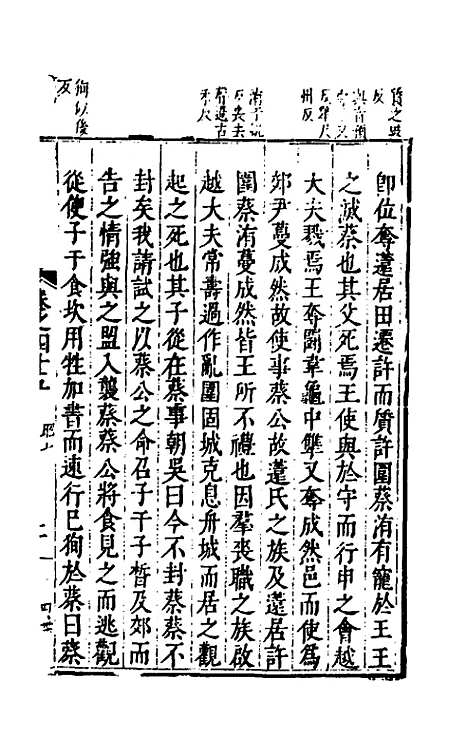 質之豉反
與音預
州反
喪息浪
徇似俊反
即位奪薳居田遷許而質許圍蔡洧有寵於王王
之滅蔡也其父死焉王使與於守而行申之會越
大夫戮焉王奪鬬韋龜中犫又奪成然邑而使為
郊尹蔓成然故使事蔡公故薳氏之族及薳居許
圍蔡洧蔓成然皆王所不禮也因羣喪職之族啟
越大夫常壽過作亂圍固城克息舟城而居之觀
起之死也其子從在蔡事朝吳曰今不封蔡蔡不
封矣我請試之以蔡公之命召子干子晳及郊而
告之情強與之盟入襲蔡蔡公將食見之而逃觀
從使子干食坎用牲加書而速行已徇於蔡曰蔡
卷之四十五
昭七